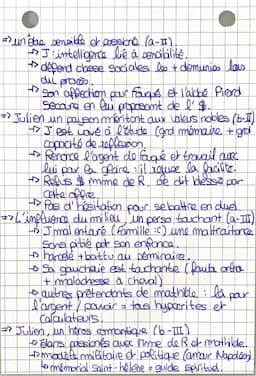 => un être sensible et passioné (a-II)
→ J : intelligence lié à sensibilité.
→ défend classe sociales les + démunies lors du procès.
→ Son affection pour Fouqué et l'abbé Pirard
Secours en lui proposant de l'$.
=> Julien un paysan méritant aux valeurs nobles (b-II)
→ J est loué à l'étude (grd mémoire + grd
capacité de reflexion.
→ Renonce l'argent de Fouqué et travail avec
lui par la gloire : il refuse la facilité.
→ Refus $ mme de R. se dit blessé par
cette offre
→ Pas d'hésitation pour se battre en duel
=> L'influence du milieu, un perso touchant (a-III)
→ J mal entouré (famille :c) une maltraitance
sans pitié pdt son enfance.
→ harcelé + battu au séminaire.
→ Sa gaucherie est touchante (faute ortho
+ maladresse à cheval)
→ autres prétendants de mathilde : là par
l'argent / pouvoir = tous hypocrites et
calculateurs.
=> Julien, un héros romantique (b-III)
→ élans passionés avec mme de R et mathilde.
→ modèle militaire et politique (amour Napoléon)
↳ mémorial saint-hélène = guide spirituel.